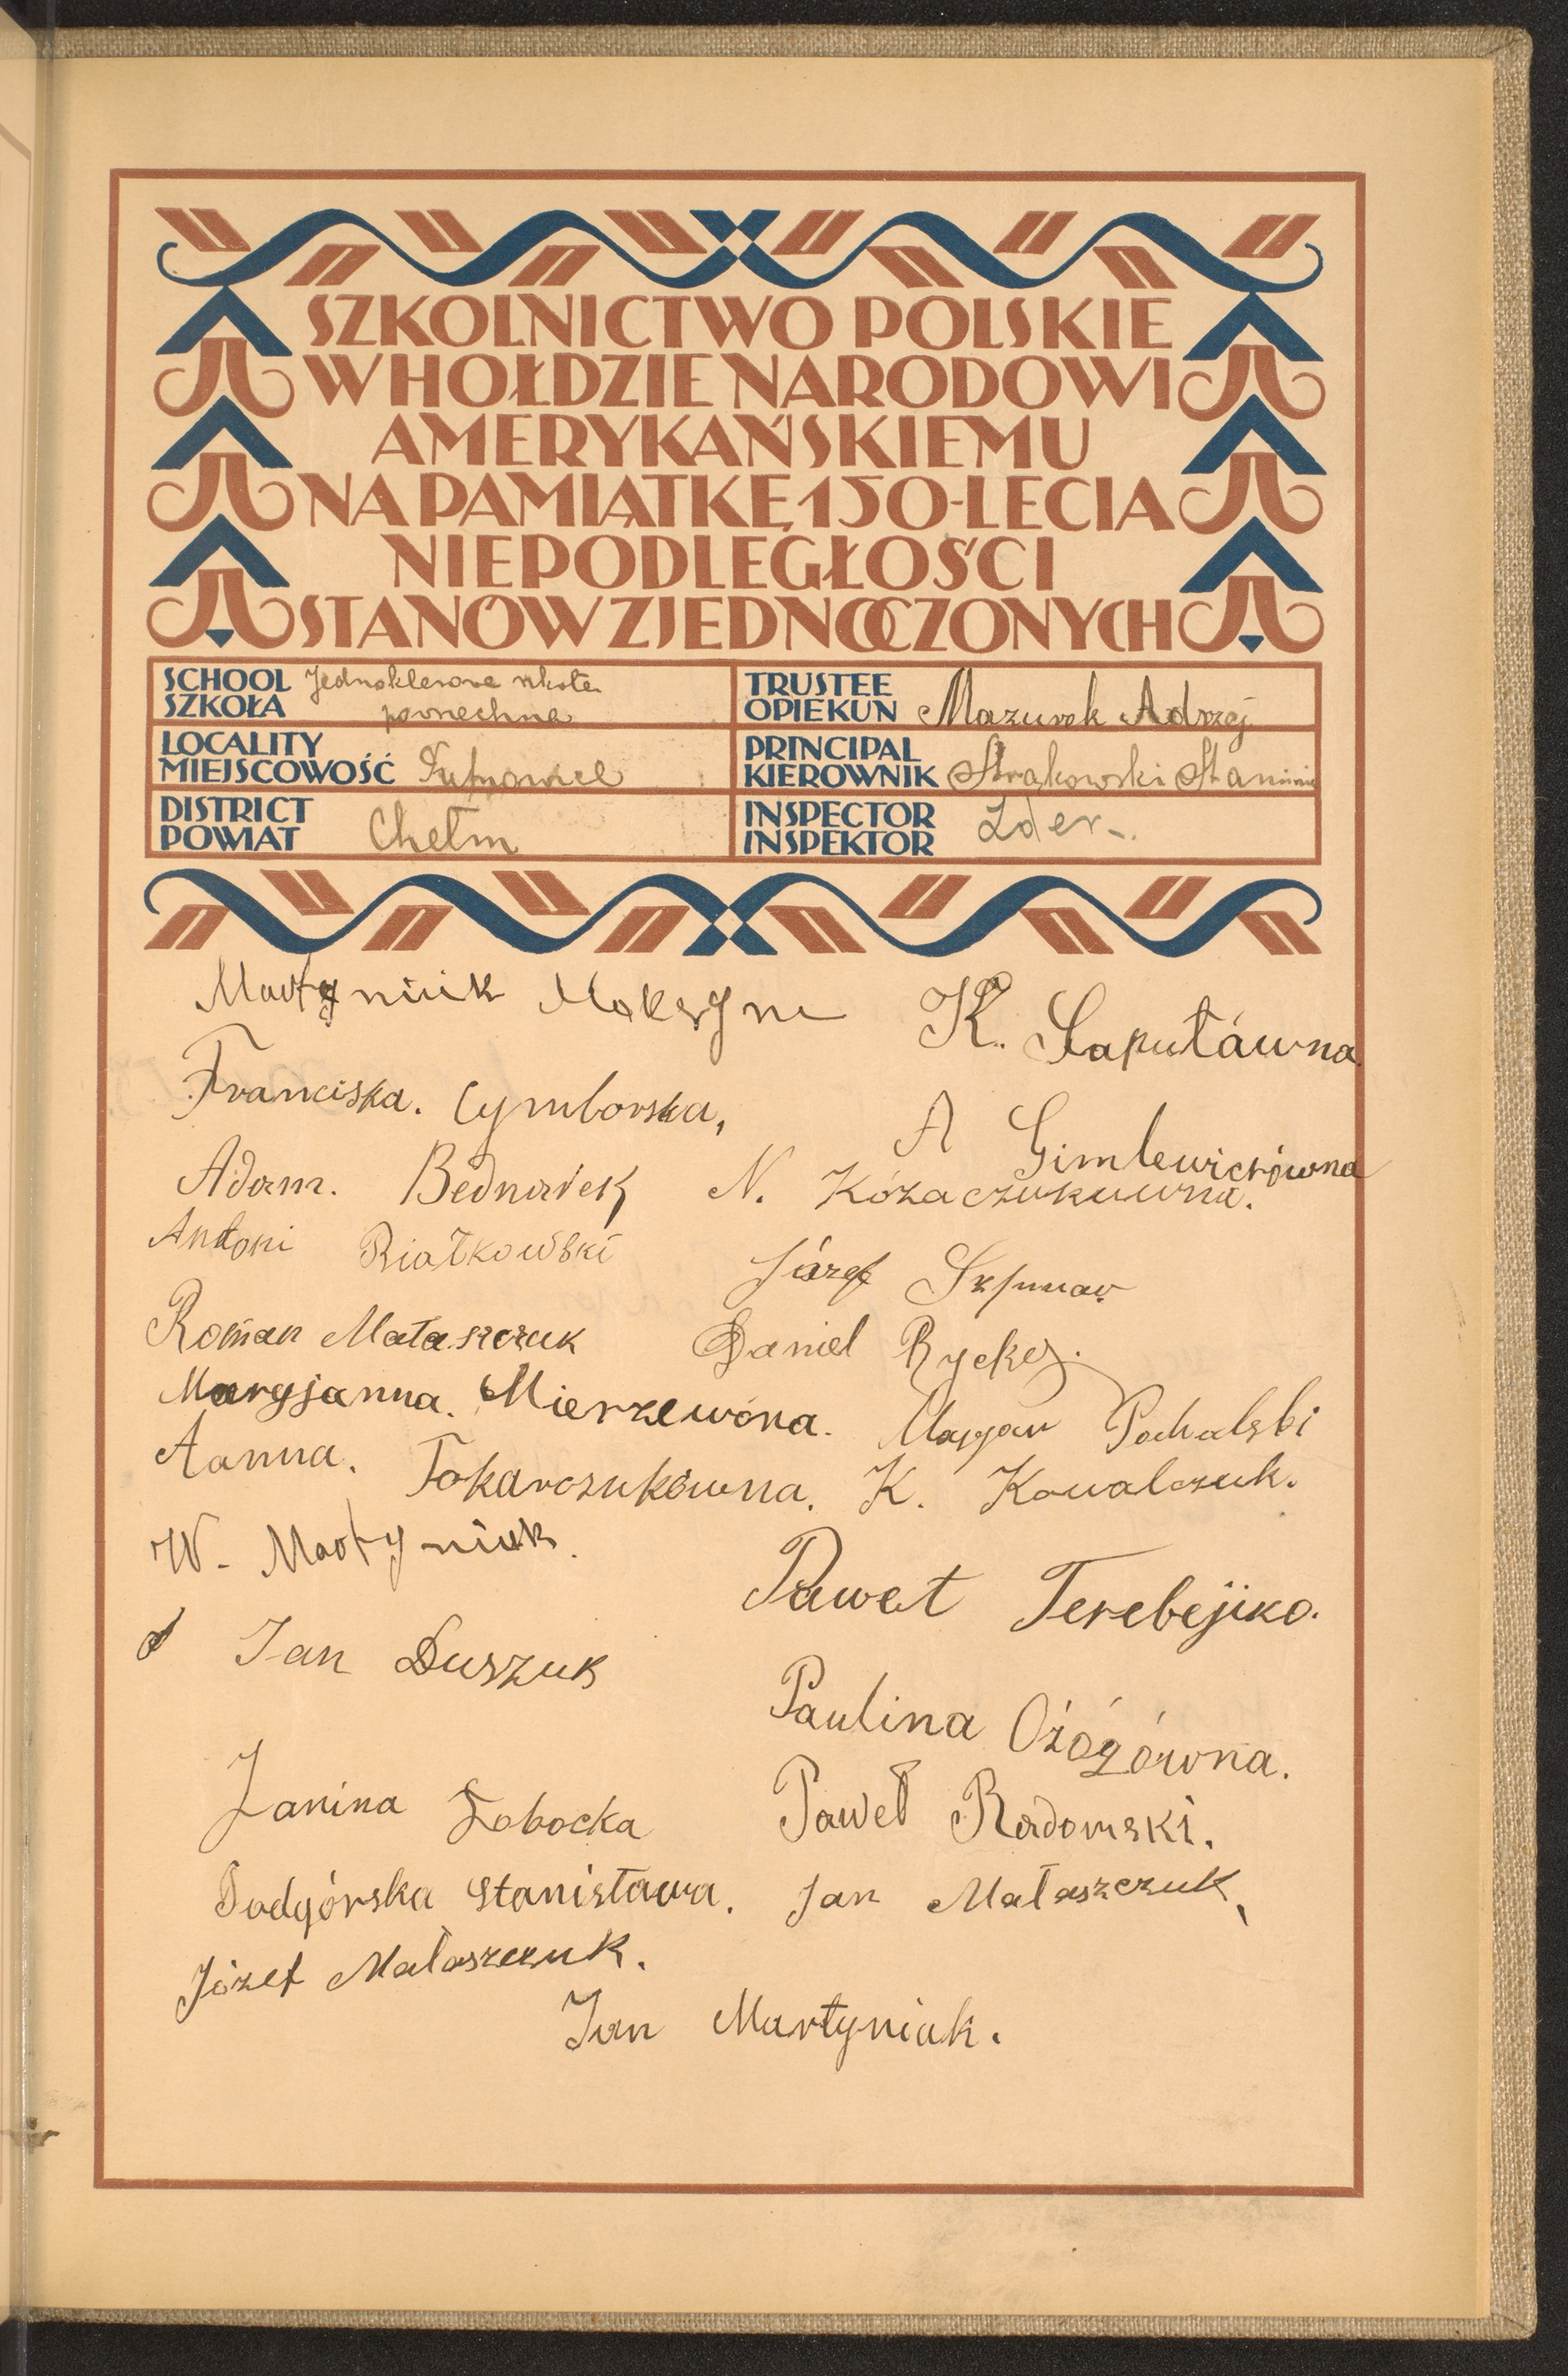 SZKOLNICTWO POLSKIE
W HOŁDZIE NARODOWI
AMERYKAŃSKIEMU
NA PAMIĄTKĘ 150-LECIA
NIEPODLEGŁOŚCI
STANÓW ZJEDNOCZONYCH
SCHOOL
SZKOŁA
Jednoklasowa szkoła
powszechna
TRUSTEE
OPIEKUN Mazurek Adrzej
LOCALITY
MIEJSCOWOŚĆ
PRINCIPAL
KIEROWNIK Strąkowski
DISTRICT
POWIAT Chełm
INSPECTOR
INSPEKTOR
Martyniuk Maksym
K. Saputówna
Franciska. Cymborska,
A Gimlewiczówna
Adam. Bednarek
N. Kózaczukuwna.
Antoni Białkowski
Józef
Roman Mataszczuk
Daniel
Maryjanna. Mierzewóna.
Maryan
Aanna. Tokarczukówna.
K. Kowalczuk.
W. Martyniuk.
Paweł Terebejiko.
Jan Duszuk
Paulina Ożógówna.
Janina Łobocka
Paweł Radomski.
Podgórska Stanisława.
Jan Małaszczuk,
Józef Małaszczuk.
Jan Martyniak.